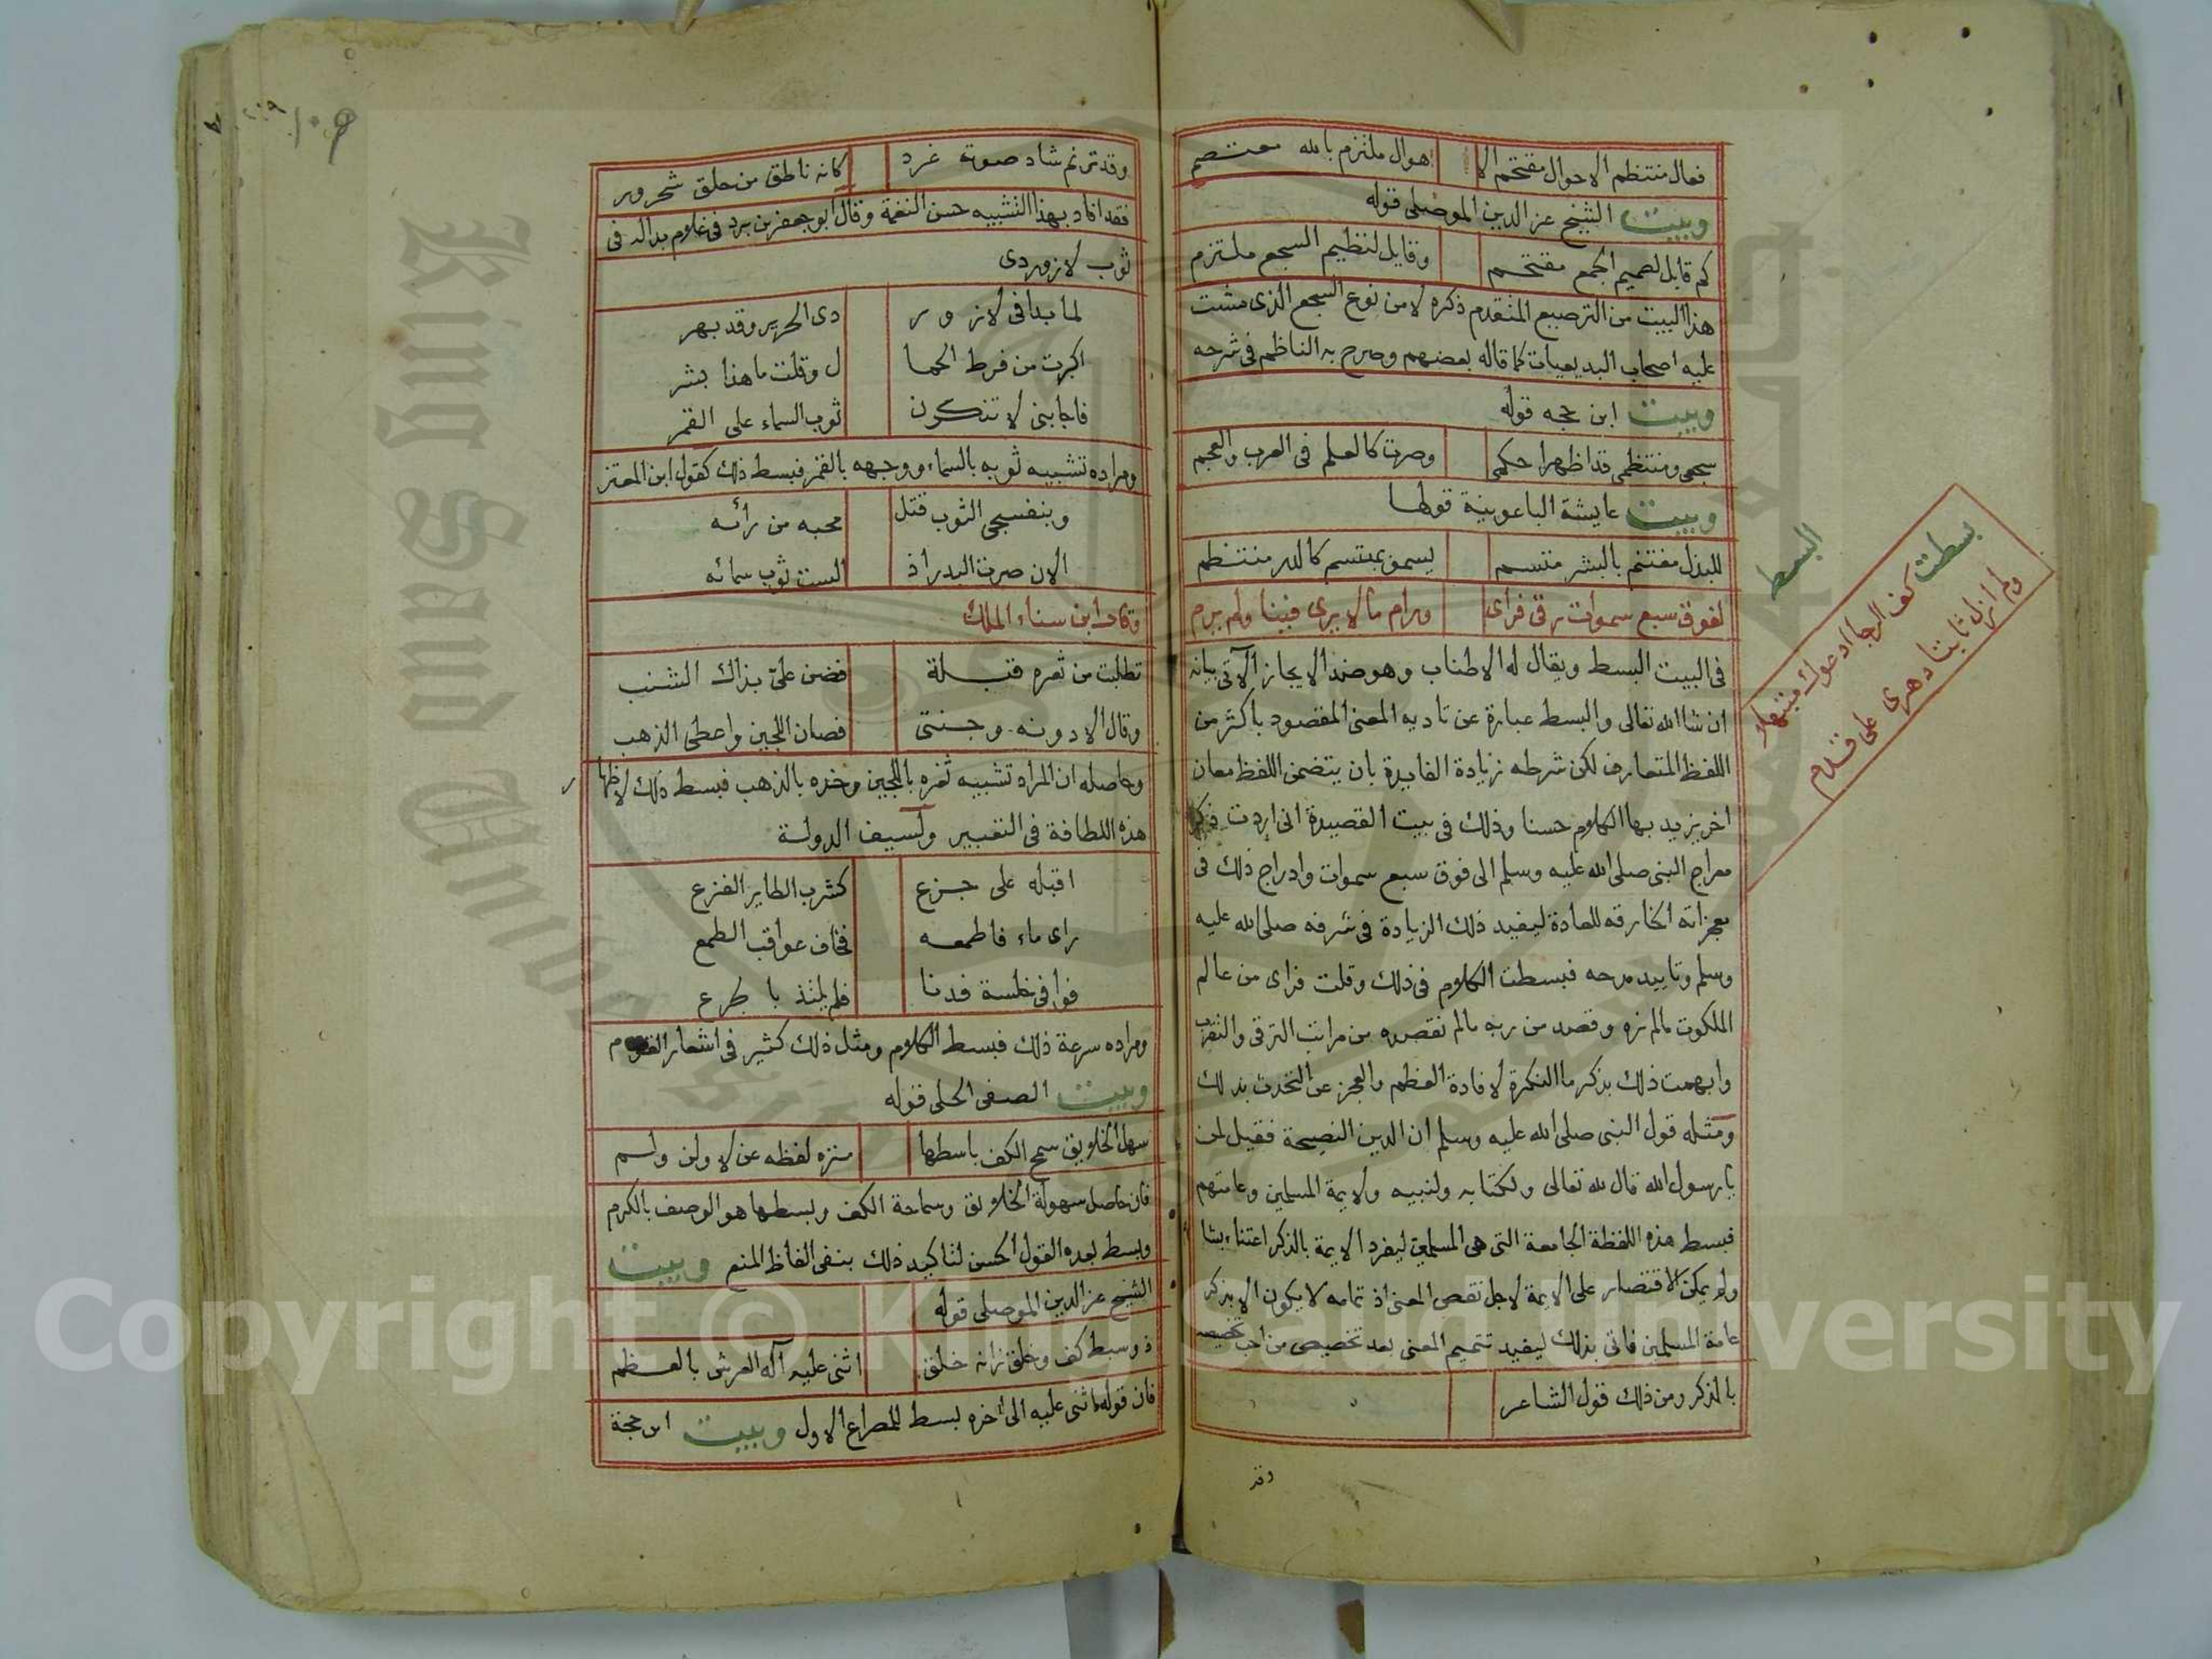 فعال منتظم الاحوال مقتحم الا هوال ملتزم بالله معتصم
وبيت الشيخ عز الدين الموصلى قوله
كم قايل لصميم الجمع مقتحم وقايل لنظيم السجع ملتزم
هذا البيت من الترصيع المتقدم ذكره لا من نوع السجع الذى مشت
عليه اصحاب البديعيات كما قاله بعضهم وصرح به الناظم فى شرحه
وبيت ابن حجه قوله
سجعى ومنتظمى قد اظهرا حكمى وصرت كالعلم فى العرب والعجم
وبيت عايشة الباعونية قولها
للبذل مغتنم بالبشر متسم يسمو بمبتسم كالدر منتظم
لفوق سبع سموات رقى فراى ورام ما لا يرى فينا ولم يرم
فى البيت البسط ويقال له الاطناب وهو ضد الايجاز الآتى بيانه
ان شا الله تعالى والبسط عبارة عن تاديه المعنى المقصود باكثر من
اللفظ المتعارف لكن شرطه زيادة الفايدة بان يتضمن اللفظ معان
اخر يزيد بها الكلام حسنا وذلك فى بيت القصيدة انى اردت ذكر
معراج النبى صلى الله عليه وسلم الى فوق سبع سموات وادراج ذلك فى
معجزاته الخارقه للعادة ليفيد ذلك الزيادة فى شرفه صلى الله عليه
وسلم وتاييد مدحه فبسطت الكلام فى ذلك وقلت فراى من عالم
الملكوت مالم نره وقصد من ربه مالم نقصده من مراتب الترقى والتقرب
وابهمت ذلك بذكر ما النكرة لافادة العظم والعجز عن التحدث بذلك
ومثله قول النبى صلى الله عليه وسلم ان الدين النصيحة فقيل لمن
يا رسول الله قال لله تعالى ولكتابه ولنبيه ولايمة المسلمين وعامتهم
فبسط هذه اللفظة الجامعة التى هى المسلمين ليفرد الايمة بالذكر اعتناء بشا
ولم يمكن الاقتصار على الايمة لاجل نقص المعنى اذ تمامه لا يكون الا بذكر
عامة المسلمين فاتى بذلك ليفيد تتميم المعنى بعد تخصيص من احب تخصيصه
بالذكر ومن ذلك قول الشاعر
وقد
البسط
بسطت كف الرجا ادعوك مبتهلا
ولم ازل ثابتا دهرى على قدم
وقد ترنم شاد صوته غرد كانه ناطق من حلق شحرور
فقد افاد بهذا التشبيه حسن النغمة وقال ابو جعفر بن برد فى غلام بدا له فى
ثوب لازوردى
لما بدا فى لازور دى الحرير وقد بهر
اكبرت من فرط الجما ل وقلت ما هذا بشر
فاجابنى لا تنكرن ثوب السماء على القمر
ومراده تشبيه ثوبه بالسماء ووجهه بالقمر فبسط ذلك كقول ابن المعتز
وبنفسجى الثوب قتل محبه من رائه
الان صرت البدر اذ البست ثوب سمائه
وقال ابن سناء الملك
تطلبت من ثغره قبلة فضن على بذاك الشنب
وقال الا دونه وجنتى فصان اللجين واعطى الذهب
وحاصله ان المراد تشبيه ثغره باللجين وخده بالذهب فبسط ذلك لاظها ر
هذه اللطافة فى التعبير ولسيف الدولة
اقبله على جزع كشرب الطاير الفزع
راى ماء فاطمعه فخاف عواقب الطمع
فوافى خلسة فدنا فلم يلتذ بالجرع
ومراده سرعة ذلك فبسط الكلام ومثل ذلك كثير فى اشعار القوم
وبيت الصفى الحلى قوله
سهل الخلايق سمح الكف باسطها منزه لفظه عن لا ولن ولم
فان حاصل سهولة الخلايق وسماحة الكف وبسطها هو الوصف بالكرم
وبسط بعده القول الحسن لتاكيد ذلك بنفى الفاظ المنع وبيت
الشيخ عز الدين الموصلى قوله
ذو بسط كف وخلق زانه خلق اثنى عليه اله العرش بالعظم
فان قوله اثنى عليه الى اخره بسط للمصراع الاول وبيت ابن حجة
Copyright © King Saud University
King Saud University